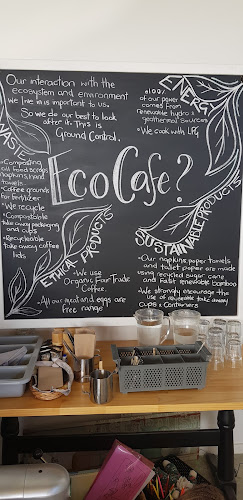 Our interaction with the
ecosystem and environment
we live in is important to us.
So we do our best to look
after it. This is
Ground Control.
ENERGY
100%
of our power
comes from
renewable hydro &
geothermal sources
We cook with LPG
Eco Cafe?
WASTE
Composting
all food scraps
napkins, hand
towels
Coffee grounds
for fertilizer
We recycle
Compostable
take away packaging
and cups
Recyclable
take away coffee
lids
ETHICAL PRODUCTS
We use
Organic Fair Trade
Coffee.
All our meat and eggs are
free range
SUSTAINABLE PRODUCTS
Our napkins, paper towels
and toilet paper are made
using recycled sugar cane
and fast renewable bamboo
We strongly encourage the
use of reuseable take away
cups & containers